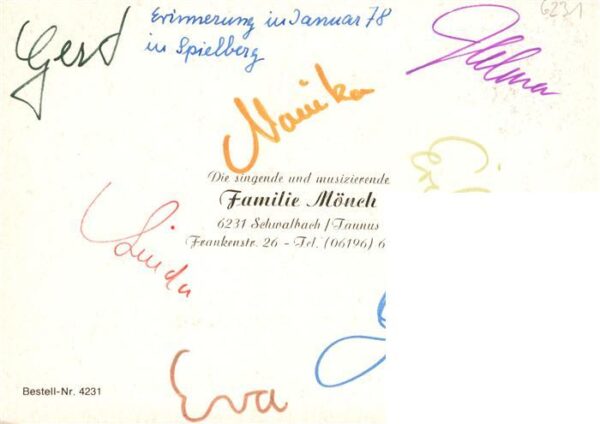 6231
Gerd
Erinnerung in Januar 78
in Spielberg
Helma
Monika
Die singende und musizierende
Familie Mönch
6231 Schwalbach / Taunus
Frankenstr. 26 - Tel. (06196) 6
Linda
Eva
Bestell-Nr. 4231